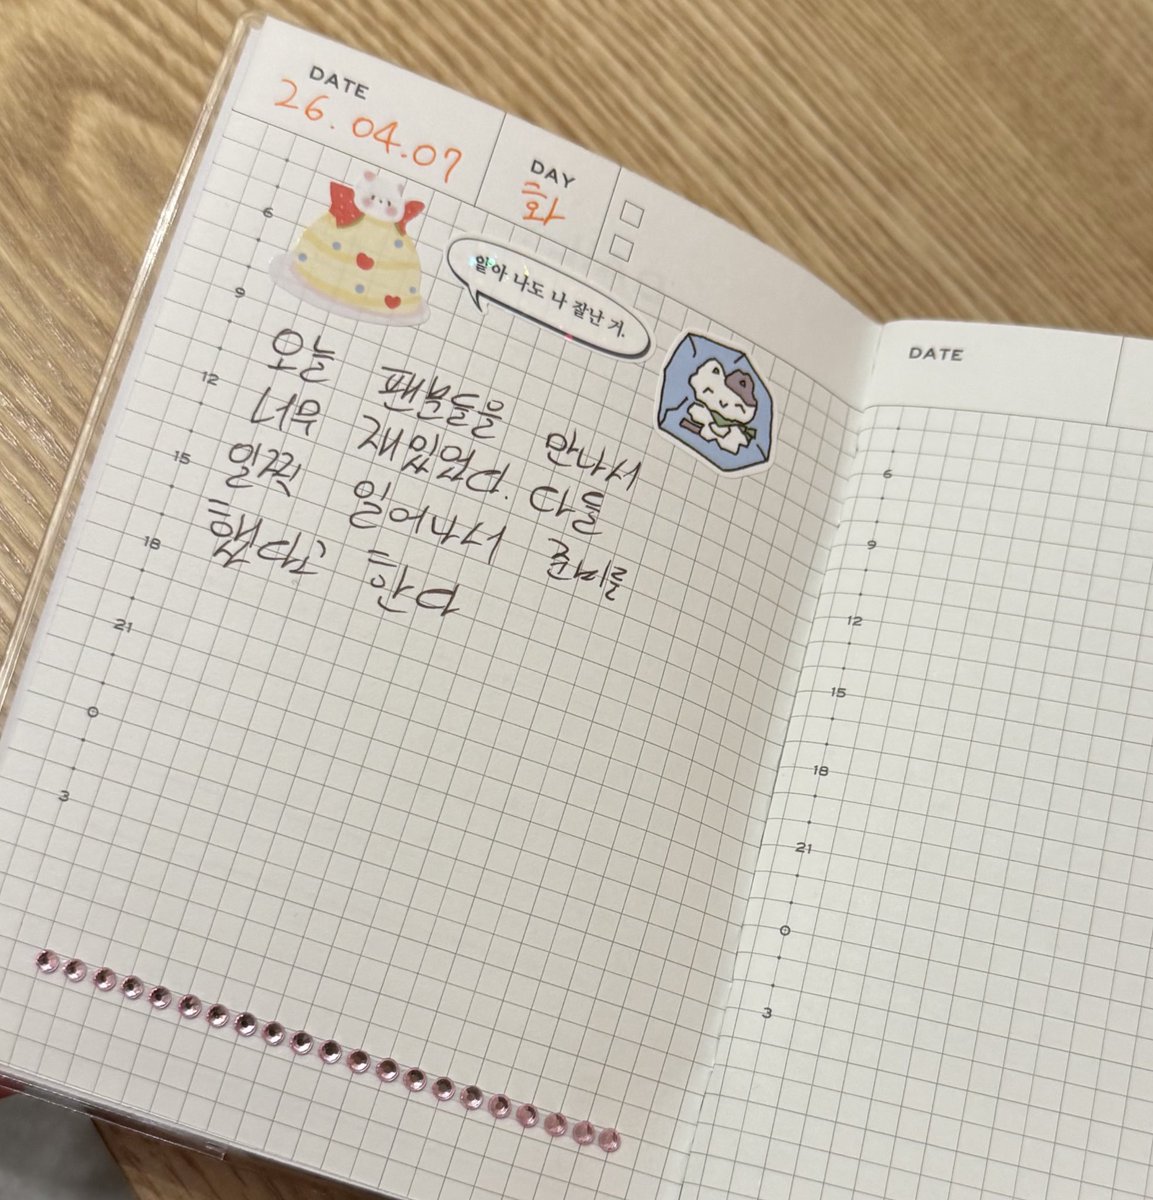 DATE
26.04.07
DAY
화
6
9
12
15
18
21
0
3
알아 나도 나 잘난 거.
오늘 팬분들을 만나서
너무 재있었다. 다들
일찍 일어나서 준비를
했다고 한다
DATE
6
9
12
15
18
21
0
3